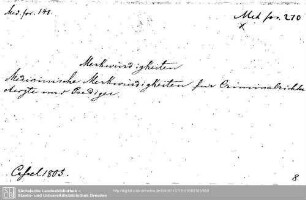 Med. for. 148.
Meh for. 270
x
Merkwürdigkeiten
Medicinische Merkwürdigkeiten fur Criminalrichter
Aerzte und Prediger.
Cassel 1803.
8
Sächsische Landesbibliothek -
Staats- und Universitätsbibliothek Dresden